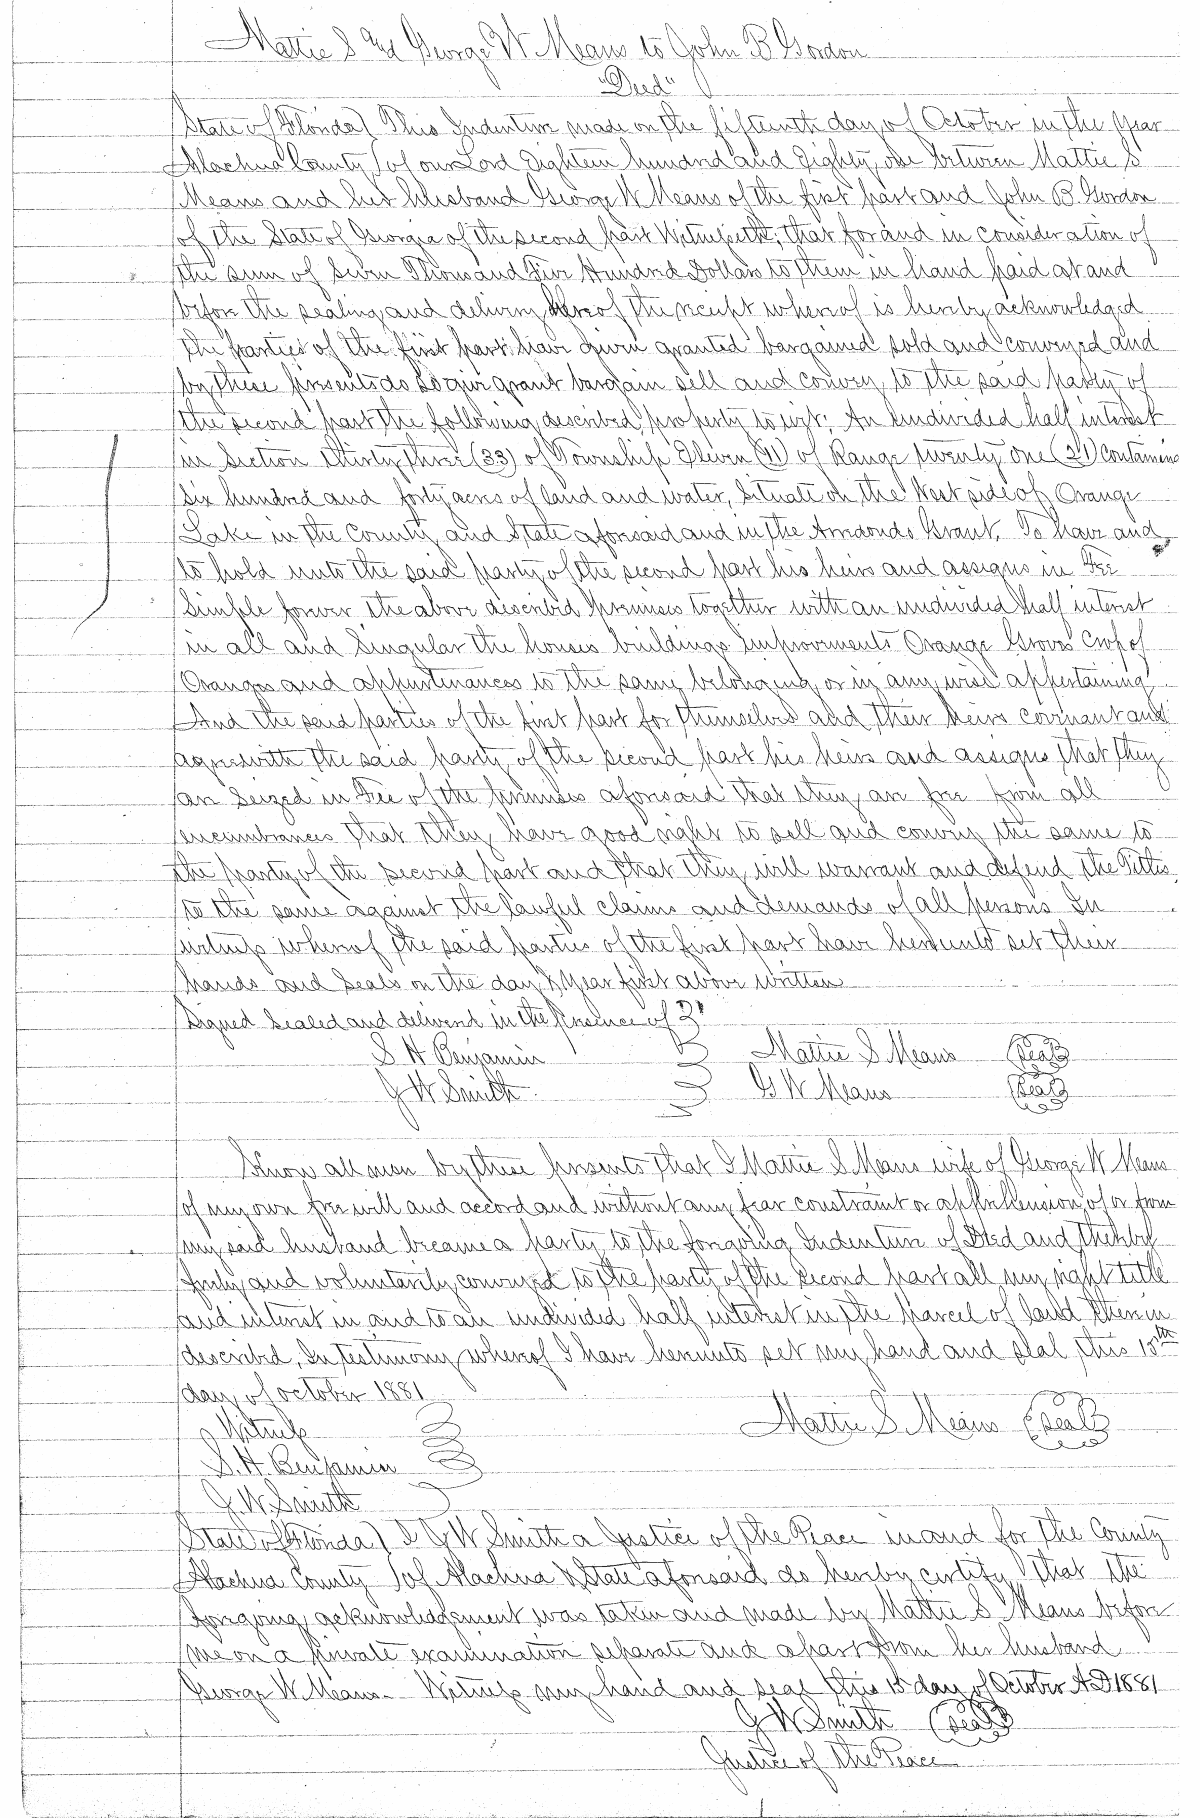 Mattie S and George W Means to John B Gordon
"Deed"
State of Florida) This Indenture made on the fifteenth day of October in the year
Alachua County) of our Lord Eighteen hundred and Eighty one between Mattie S
Means and her Husband George W Means of the first part and John B Gordon
of the State of Georgia of the second part Witnesseth; that for and in consideration of
the sum of Seven Thousand Five Hundred Dollars to them in hand paid at and
before the sealing and delivery hereof the receipt whereof is hereby acknowledged
the parties of the first part have given granted bargained sold and conveyed and
by these presents do so give grant bargain sell and convey to the said party of
the second part the following described property to wit; An undivided half interest
in Section thirty three (33) of Township Eleven (11) of Range twenty one (21) containing
six hundred and forty acres of land and water, situate on the West side of Orange
Lake in the County and State aforesaid and in the Arredondo Grant, To have and
to hold unto the said party of the second part his heirs and assigns in Fee
Simple forever the above described premises together with an undivided half interest
in all and singular the houses buildings improvements Orange Groves Crop of
Oranges and appurtenances to the same belonging or in any wise appertaining
And the said parties of the first part for themselves and their heirs covenant and
agree with the said party of the second part his heirs and assigns that they
are seized in Fee of the premises aforesaid that they are free from all
encumbrances that they have good right to sell and convey the same to
the party of the second part and that they will warrant and defend the Titles
to the same against the lawful claims and demands of all persons In
witness whereof the said parties of the first part have hereunto set their
hands and seals on the day & year first above written
Signed sealed and delivered in the presence of
S H Benjamin Mattie S Means (seal)
J W Smith G W Means (seal)
Know all men by these presents that I Mattie S Means wife of George W Means
of my own free will and accord and without any fear constraint or apprehension of or from
my said husband became a party to the foregoing Indenture of Deed and thereby
freely and voluntarily conveyed to the party of the second part all my right title
and interest in and to an undivided half interest in the parcel of land therein
described, In testimony whereof I have hereunto set my hand and seal this 15th
day of october 1881
Witness Mattie S Means (seal)
S. H Benjamin
J. W. Smith
State of Florida) I J W Smith a Justice of the Peace in and for the County
Alachua County) of Alachua & State aforesaid do hereby certify that the
foregoing acknowledgement was taken and made by Mattie S Means before
me on a private examination separate and apart from her husband
George W Means - Witness my hand and seal this 15 day of October A D 1881
J W Smith (seal)
Justice of the Peace